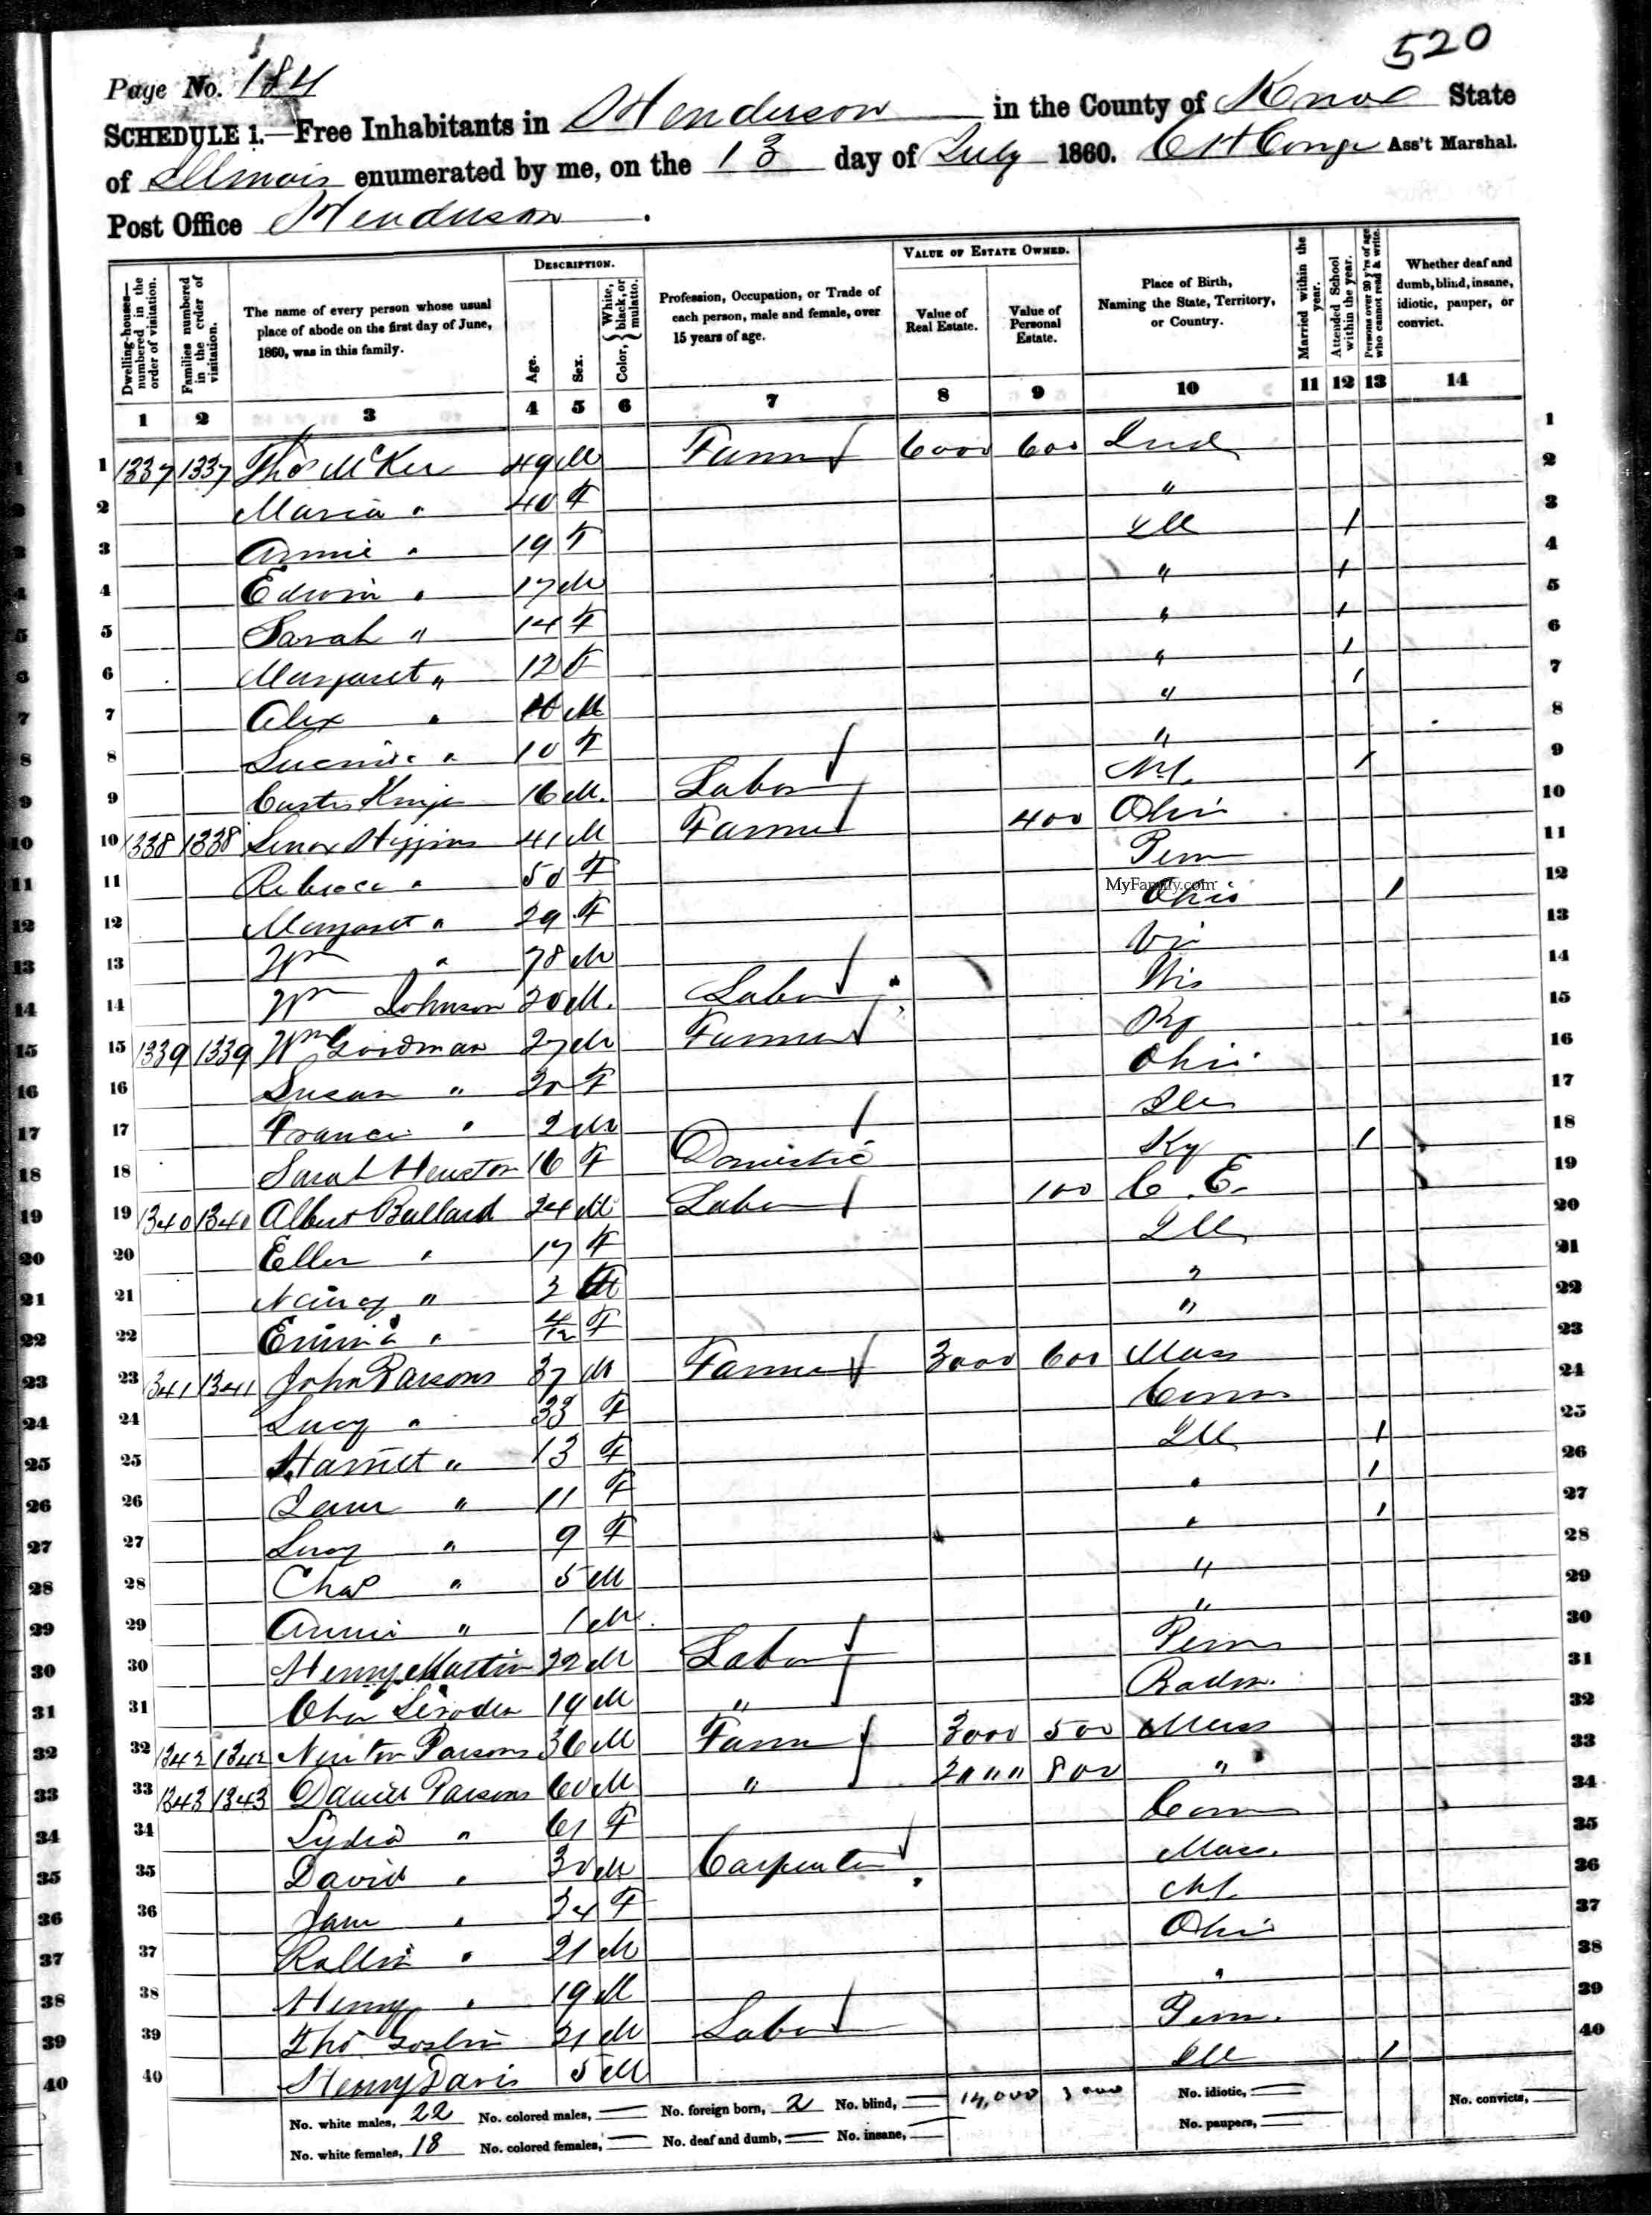 520
Page No. 184
SCHEDULE 1.—Free Inhabitants in Henderson in the County of Knox State
of Illinois enumerated by me, on the 13 day of July 1860. Ass't Marshal.
Post Office Henderson.
Dwelling-houses—numbered in the order of visitation.
Families numbered in the order of visitation.
The name of every person whose usual place of abode on the first day of June, 1860, was in this family.
DESCRIPTION.
Age.
Sex.
Color, { White, black, or mulatto.
Profession, Occupation, or Trade of each person, male and female, over 15 years of age.
VALUE OF ESTATE OWNED.
Value of Real Estate.
Value of Personal Estate.
Place of Birth, Naming the State, Territory, or Country.
Married within the year.
Attended School within the year.
Persons over 20 y'rs of age who cannot read & write.
Whether deaf and dumb, blind, insane, idiotic, pauper, or convict.
1 2 3 4 5 6 7 8 9 10 11 12 13 14
1 1337 1337 Thos McKee 49 M Farmer 6000 600 Ind 1
2 Maria " 40 F " 2
3 Annie " 19 F Ill / 3
4 Edwin " 17 M " / 4
5 Sarah " 14 F " / 5
6 Margaret " 12 F " / 6
7 Alex " M " / 7
8 " 10 F " 8
9 16 M. Labor 9
10 1338 1338 Higgins 41 M Farmer 400 Ohio 10
11 Rebecca " 50 F Penn 11
MyFamily.com
12 Margaret " 29 F Ohio / 12
13 Wm " 78 M 13
14 Wm Johnson 20 M. Labor 14
15 1339 1339 Wm Goodman 27 M Farmer Ky 15
16 Susan " 20 F Ohio 16
17 Francis " 2 M Ills 17
18 Sarah Heuston 16 F Domestic Ky / 18
19 1340 1340 Albert Bullard 24 M Labor 100 C. E. 19
20 Ellen " 17 F Ill 20
21 Nancy " 3 " 21
22 Emma " 4/12 F " 22
23 1341 1341 John Parsons 37 M Farmer 3000 600 Mass 23
24 Lucy " 33 F Conn 24
25 Harriet " 13 F Ill / 25
26 " 11 F " / 26
27 Lucy " 9 F " / 27
28 Chas " 5 M " 28
29 Annie " 1 M " 29
30 Henry Martin 22 M Labor Penn 30
31 19 M " Baden. 31
32 1342 1342 Newton Parsons 36 M Farmer 3000 500 Mass 32
33 1343 1343 Daniel Parsons 60 M " 2000 800 " 33
34 Lydia " 61 F Conn 34
35 David " 30 M Carpenter Mass. 35
36 Jane " 24 F 36
37 Rollin " 21 M Ohio 37
38 Henry " 19 M " 38
39 Tho Goslin 21 M Labor Penn. 39
40 Henry Davis 5 M Ill / 40
No. white males, 22 No. colored males, — No. foreign born, 2 No. blind, — 14,000 3000 No. idiotic, — No. convicts, —
No. white females, 18 No. colored females, — No. deaf and dumb, — No. insane, — No. paupers, —